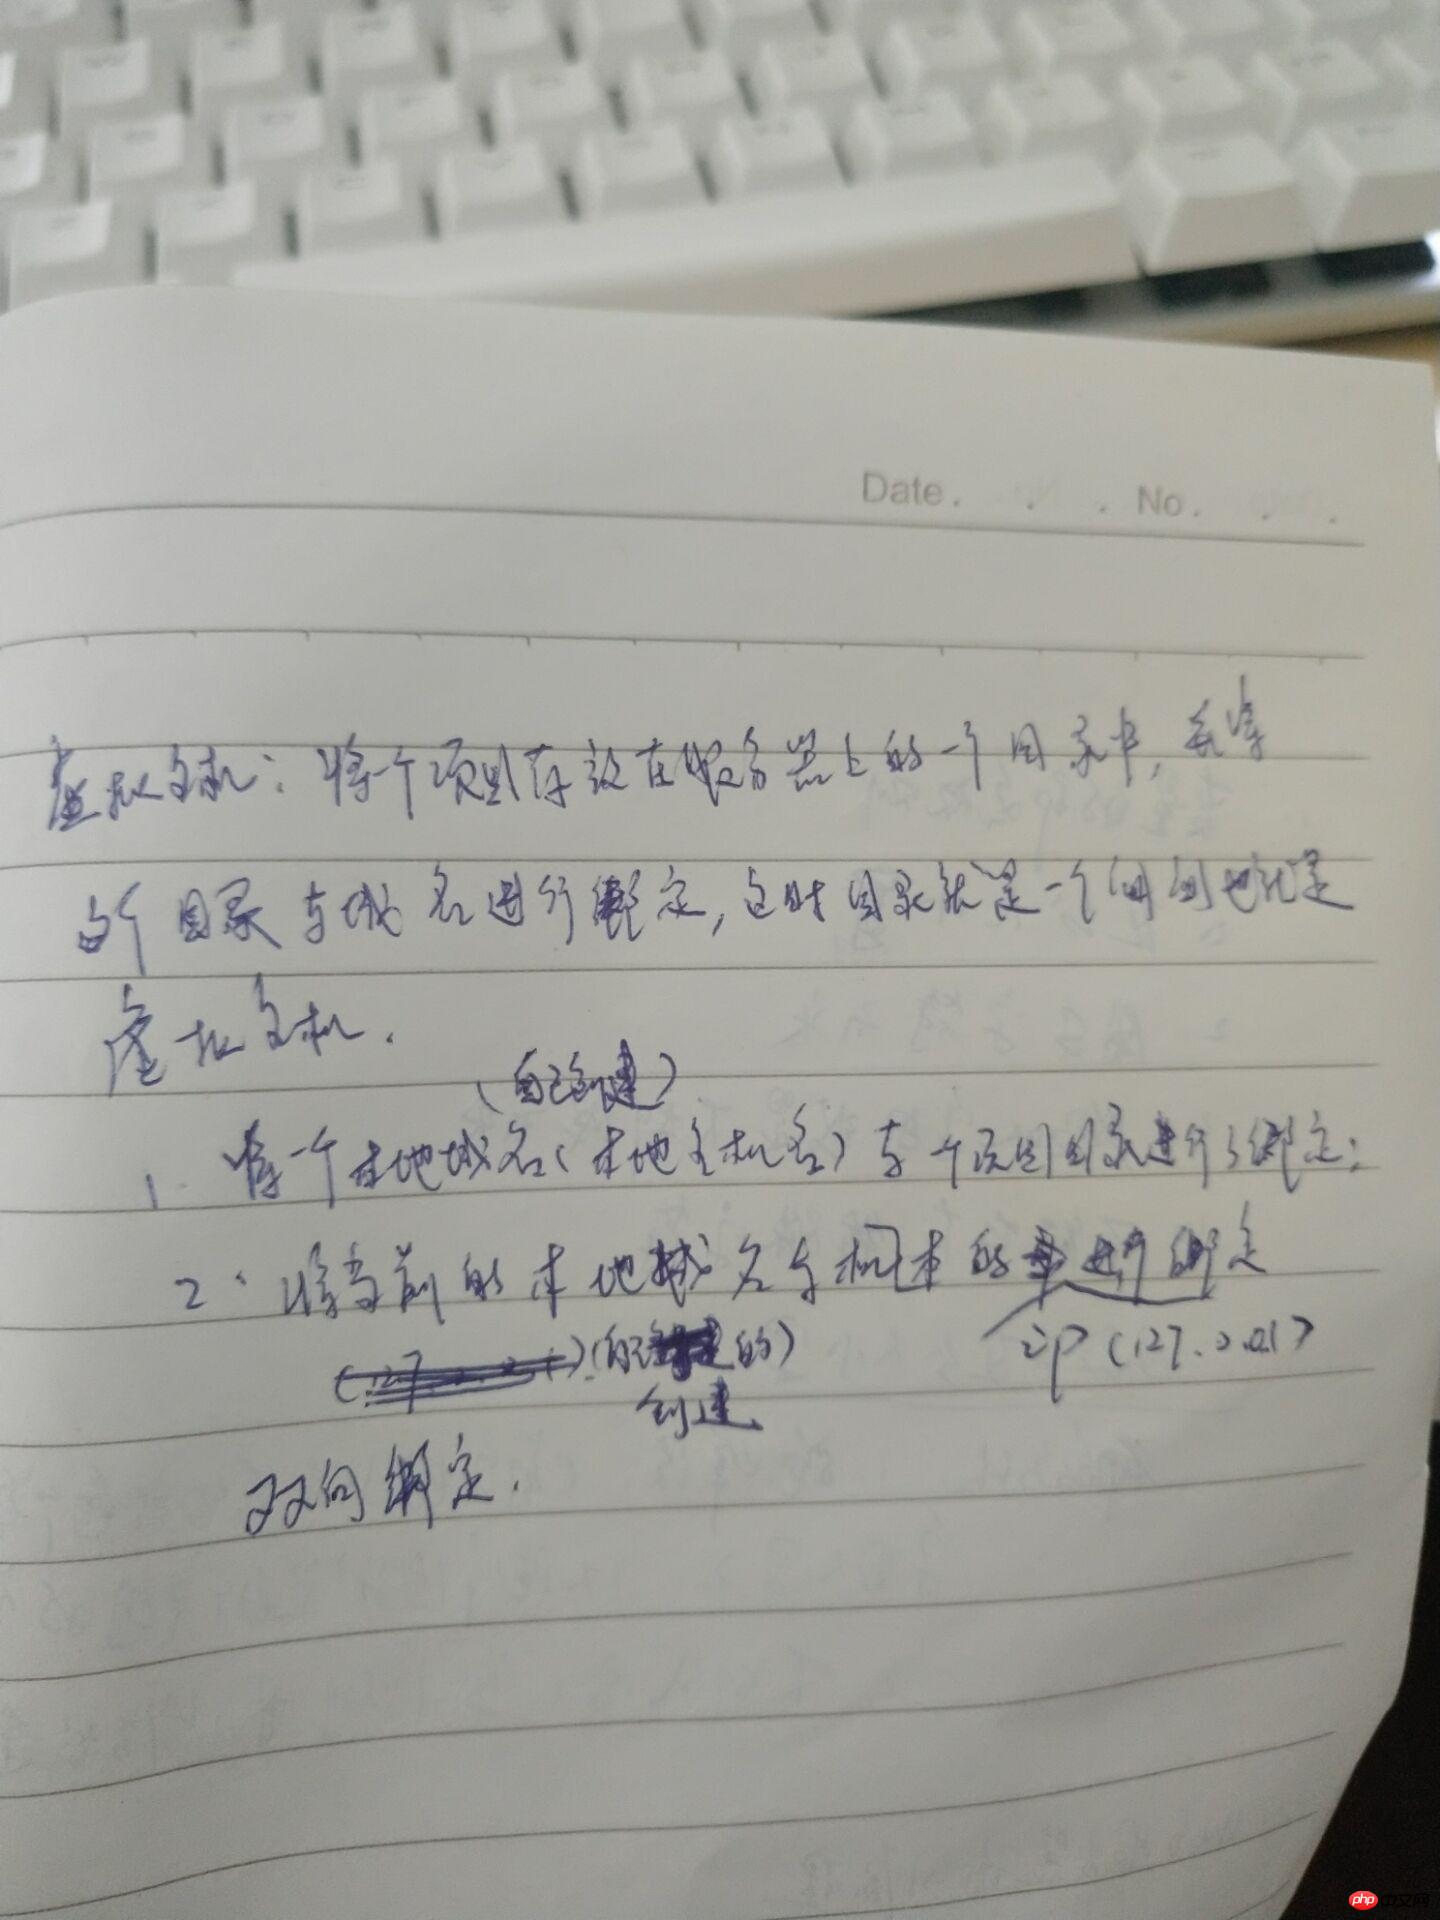 Date. . . No. . .
虚拟主机:将一个项目存放在服务器上的一个目录中,并将
这个目录与域名进行绑定,这时目录就是一个 也就是
虚拟主机.
(自己创建)
1. 将一个本地域名(本地主机名)与一个项目目录进行绑定;
2. 将当前的本地域名与 本的 进行绑定
(自己 的) ip (127.0.0.1)
创建
双向绑定.
php 中文网